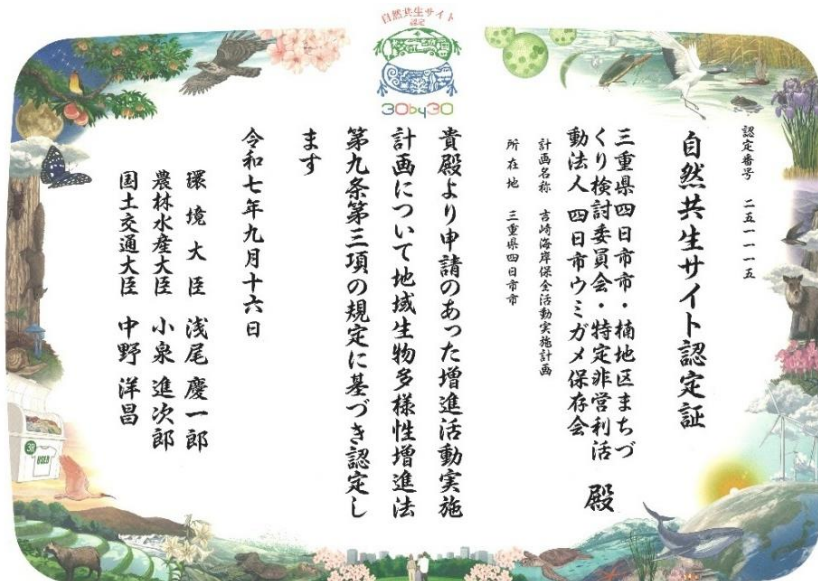 自然共生サイト
認定
30by30
認定番号　二五一一一五
自然共生サイト認定証
三重県四日市市・楠地区まちづ
くり検討委員会・特定非営利活
動法人 四日市ウミガメ保存会　殿
計画名称　吉崎海岸保全活動実施計画
所在地　三重県四日市市
貴殿より申請のあった増進活動実施
計画について地域生物多様性増進法
第九条第三項の規定に基づき認定し
ます
令和七年九月十六日
環境大臣　浅尾　慶一郎
農林水産大臣　小泉　進次郎
国土交通大臣　中野　洋昌
USED